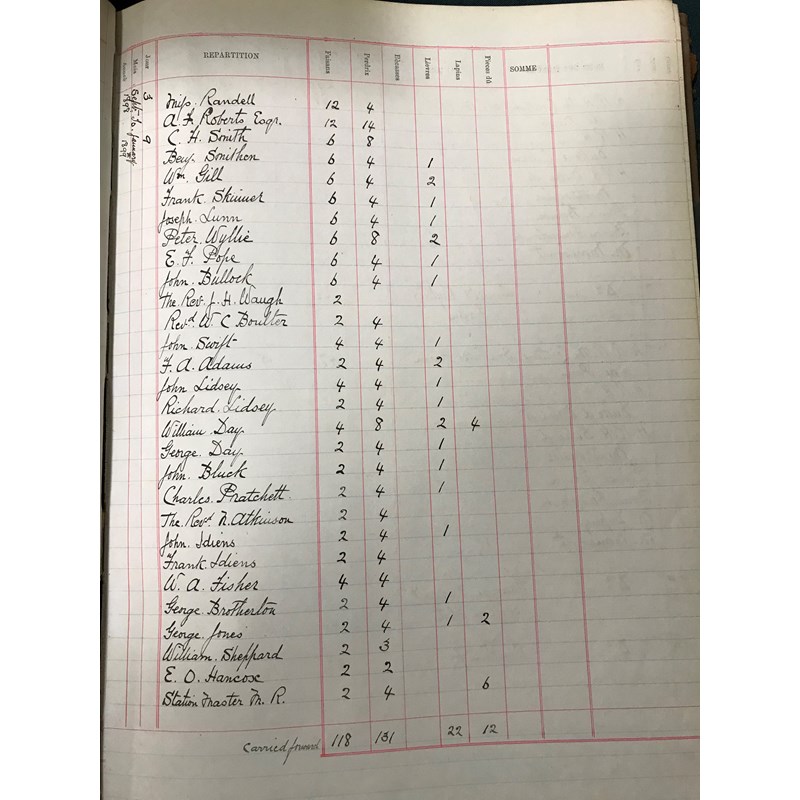 Année Mois Jour REPARTITION Faisans Perdrix Bécasses Lièvres Lapins Pièces dû SOMME
1898 Sept. to January 1899
3 9
Miss Randell 12 4
A. F. Roberts Esqr. 12 14
C. H. Smith 6 8
Benj. Smithen 6 4 1
Wm. Gill 6 4 2
Frank Skinner 6 4 1
Joseph Lunn 6 4 1
Peter Wyllie 6 8 2
E. F. Pope 6 4 1
John Bullock 6 4 1
The Rev. J. H. Waugh 2
Revd. W. C Boulter 2 4
John Swift 4 4 1
F. A. Adams 2 4 2
John Lidsey 4 4 1
Richard Lidsey 2 4 1
William Day 4 8 2 4
George Day 2 4 1
John Bluck 2 4 1
Charles Pratchett 2 4 1
The Revd. N. Atkinson 2 4
John Idiens 2 4 1
Frank Idiens 2 4
W. A. Fisher 4 4
George Brotherton 2 4 1
George Jones 2 4 1 2
William Sheppard 2 3
E. O. Hancox 2 2
Station Master M. R. 2 4 6
Carried forward 118 131 22 12